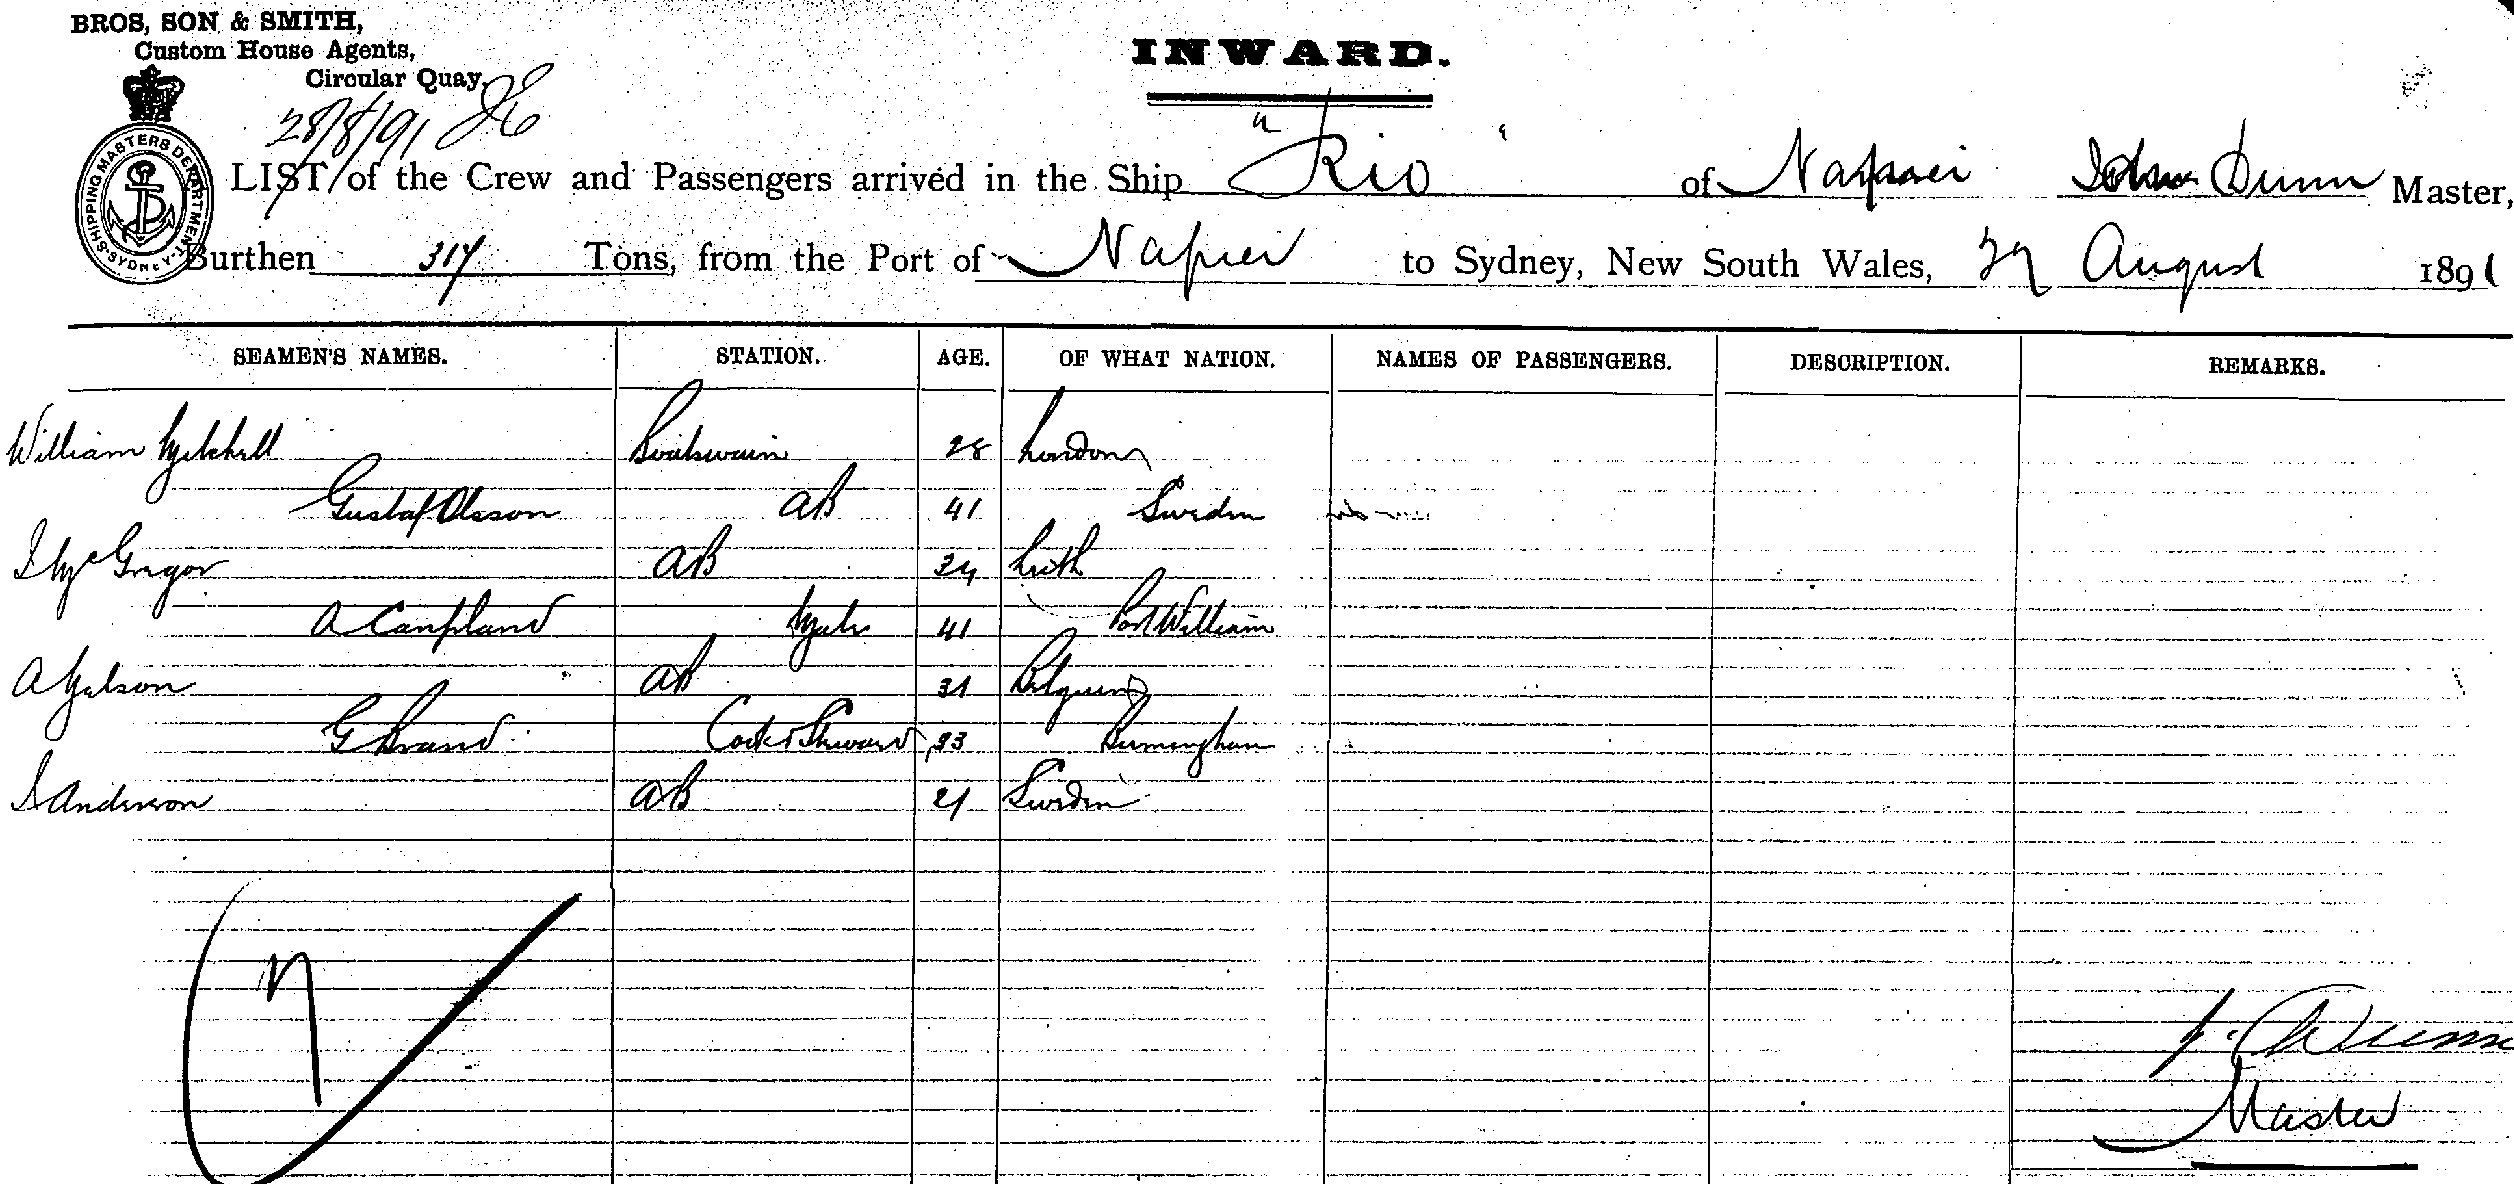 BROS, SON & SMITH,
Custom House Agents,
Circular Quay.
28/8/91
INWARD.
SHIPPING MASTERS DEPARTMENT SYDNEY
LIST of the Crew and Passengers arrived in the Ship "Rio" of Napier John Dunn Master,
Burthen 317 Tons, from the Port of Napier to Sydney, New South Wales, 27 August 1891
SEAMEN'S NAMES. STATION. AGE. OF WHAT NATION. NAMES OF PASSENGERS. DESCRIPTION. REMARKS.
William Mitchell Boatswain 28 London
Gustaf Olsson AB 41 Sweden
J McGregor AB 24 Leith
A Campland Mate 41 Port William
A Nelson AB 31 Belgium
G Brand Cook & Steward 33 Birmingham
J Anderson AB 21 Sweden
7
J. Dunn
Master